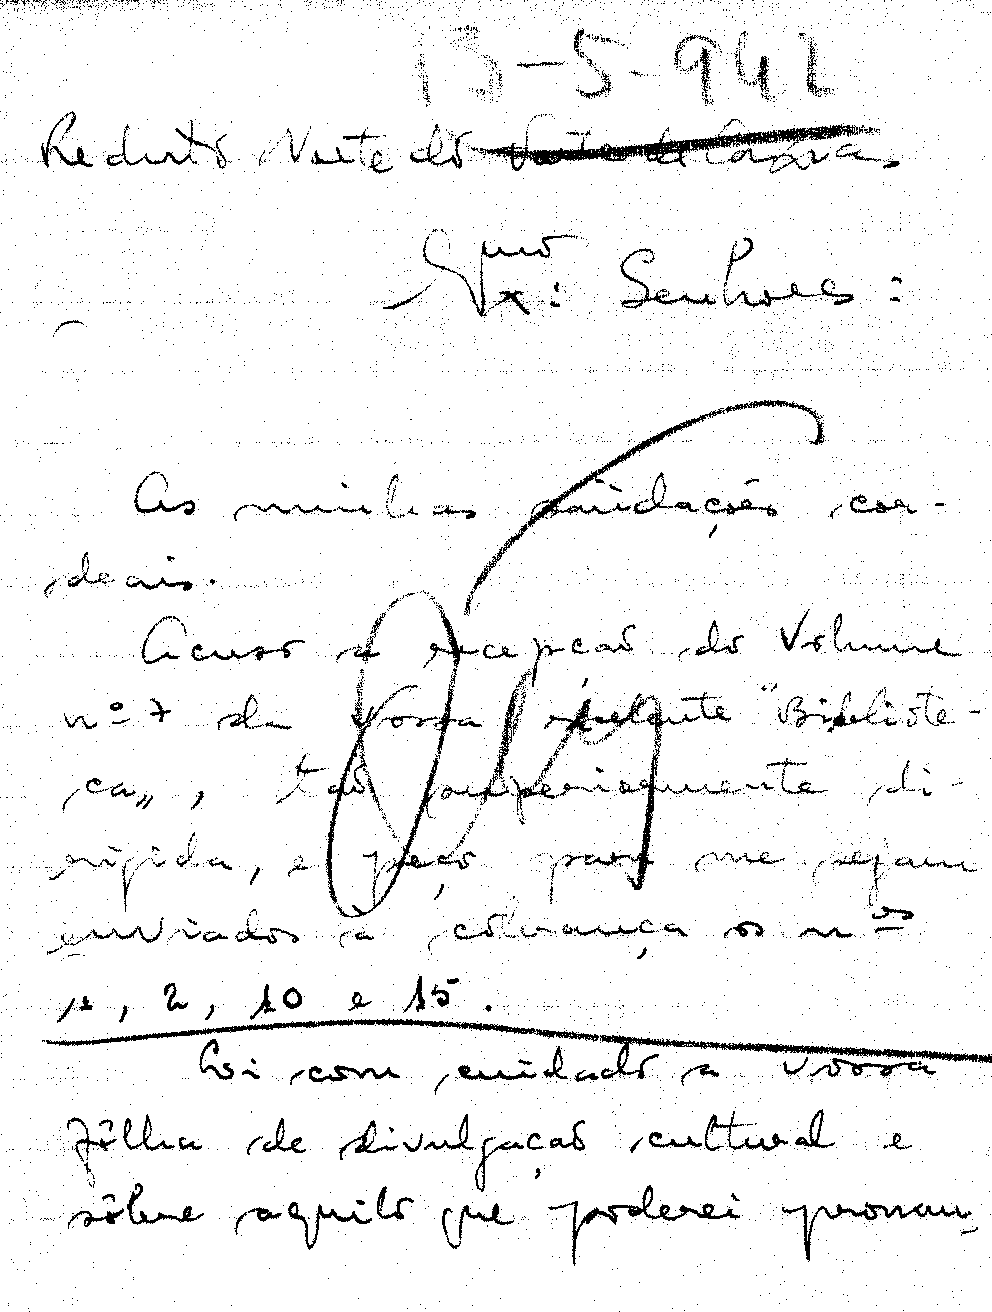 13-5-942
Reduto Norte do
Exmos: Senhores:
As minhas saüdações cor-
deais.
Acuso a recepção do Volume
nº 7 da Vossa "Bibliote-
ca„, tão superiormente di-
rigida, e peço para me sejam
enviados à cobrança os nºs
1, 2, 10 e 15.
Li com cuidado a vossa
fôlha de divulgação cultural e
sôbre aquilo que poderei pronun-